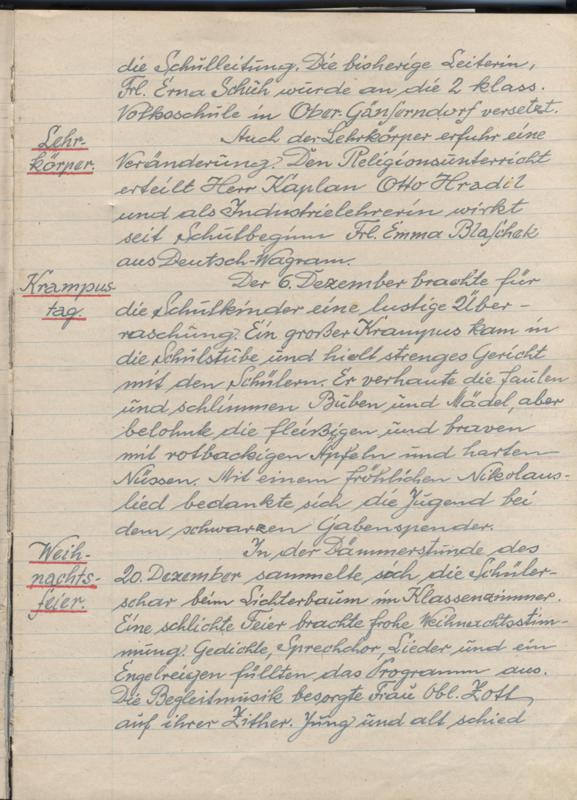 die Schulleitung. Die bisherige Leiterin,
Frl. Erna Schuh wurde an die 2 klass.
Volksschule in Ober-Gänserndorf versetzt.
Lehr-
körper.
Auch der Lehrkörper erfuhr eine
Veränderung. Den Religionsunterricht
erteilt Herr Kaplan Otto Hradil
und als Industrielehrerin wirkt
seit Schulbeginn Frl. Emma Blaschek
aus Deutsch-Wagram.
Krampus-
tag.
Der 6. Dezember brachte für
die Schulkinder eine lustige Über-
raschung. Ein großer Krampus kam in
die Schulstube und hielt strenges Gericht
mit den Schülern. Er verhaute die faulen
und schlimmen Buben und Mädel, aber
belohnte die fleißigen und braven
mit rotbackigen Äpfeln und harten
Nüssen. Mit einem fröhlichen Nikolaus-
lied bedankte sich die Jugend bei
dem schwarzen Gabenspender.
Weih-
nachts-
feier.
In der Dämmerstunde des
20. Dezember sammelte sich die Schüler-
schar beim Lichterbaum im Klassenzimmer.
Eine schlichte Feier brachte frohe Weihnachtsstim-
mung. Gedichte, Sprechchor, Lieder und ein
Engelreigen füllten das Programm aus.
Die Begleitmusik besorgte Frau Obl. Zott
auf ihrer Zither. Jung und alt schied